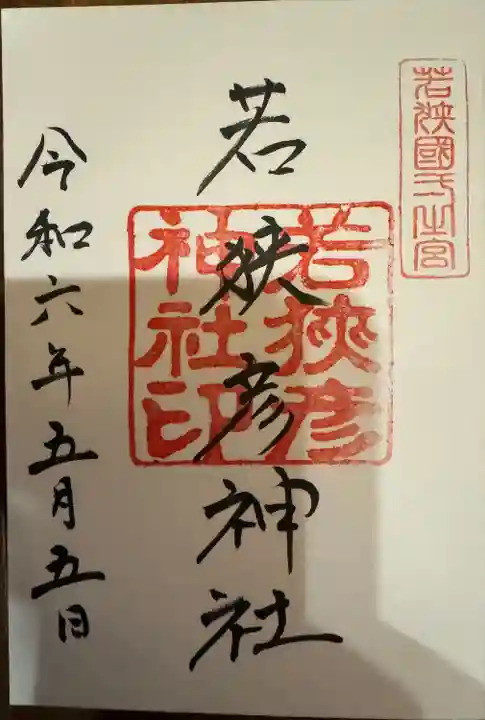 若狭國一之宮
若狭彦神社
若狭彦
神社印
令和六年五月五日